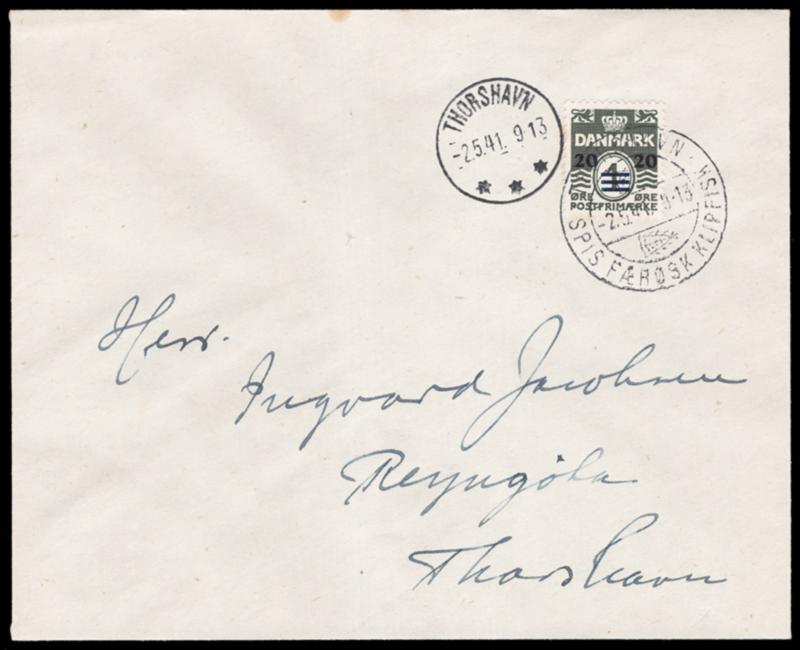 THORSHAVN
-2.5.41. 9-13
DANMARK
20 1 20
ØRE ØRE
POSTFRIMÆRKE
VN
-2.5.41. 9-13
SPIS FÆRØSK KLIPFISK
Herr.
Ingvard Jacobsen
Reyngöta
Thorshavn